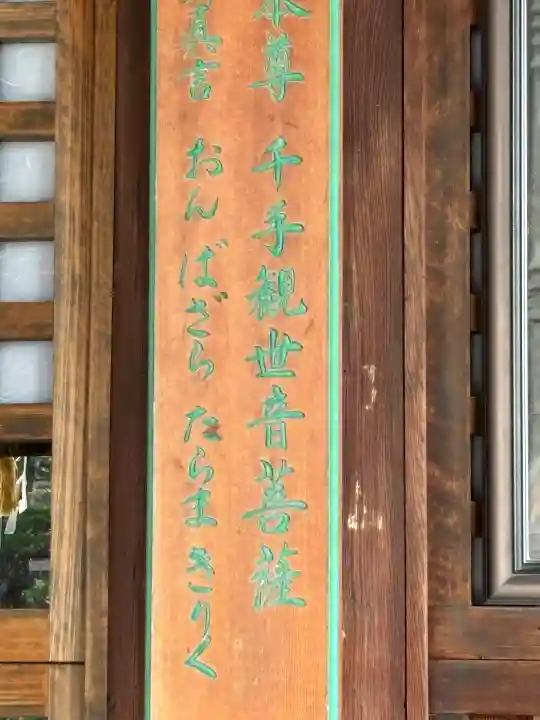 本尊 千手観世音菩薩
真言 おん ばざら たらま きりく